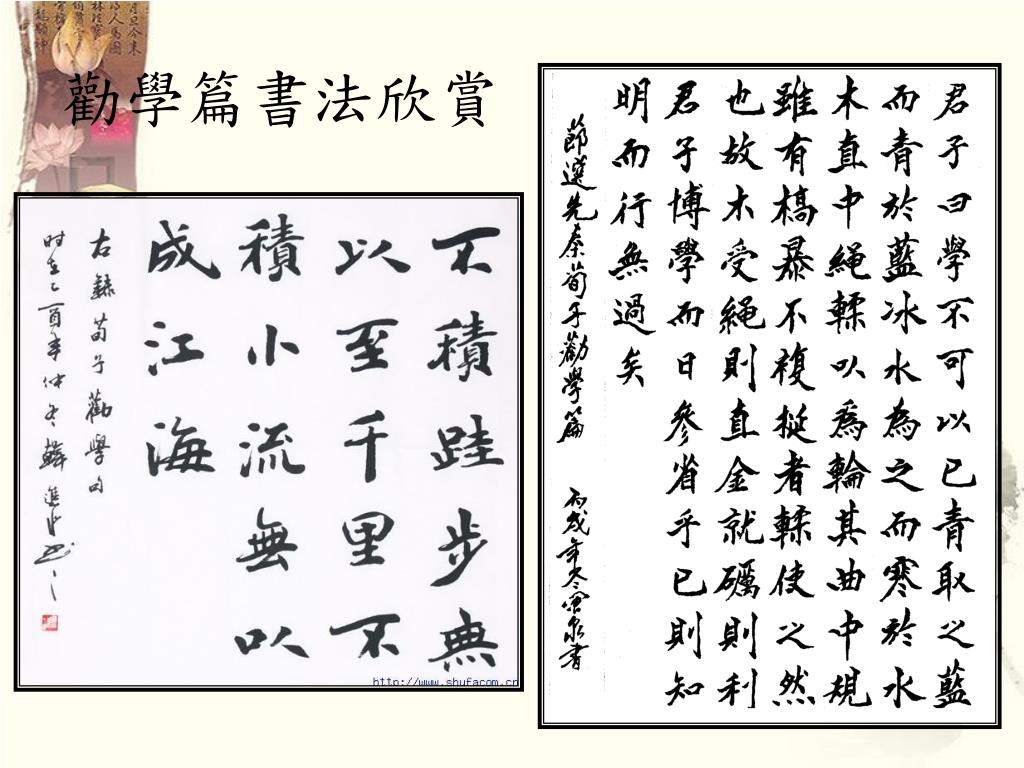 勸學篇書法欣賞
不積跬步無
以至千里不
積小流無以
成江海
右錄荀子勸學句
时在乙酉年仲冬
http://www.shufacom.cn
君子曰學不可以已青取之藍
而青於藍冰水為之而寒於水
木直中繩輮以為輪其曲中規
雖有槁暴不複挺者輮使之然
也故木受繩則直金就礪則利
君子博學而日參省乎已則知
明而行無過矣
節選先秦荀子勸學篇
丙戌年冬雪泉書